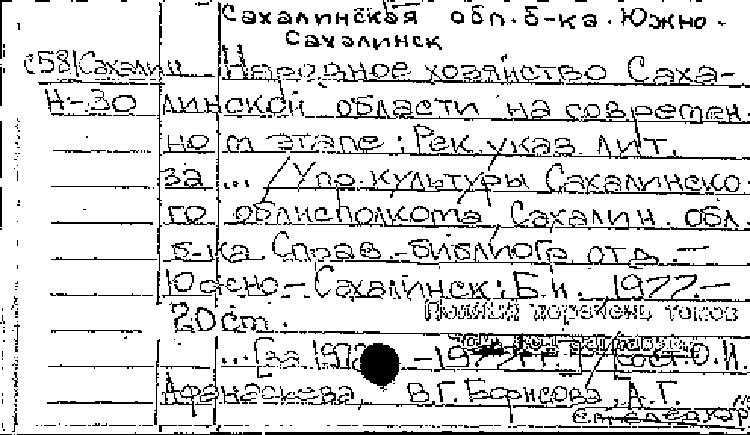 Сахалинская обл. б-ка. Южно-
Сахалинск
с58(Сахалин Народное хозяйство Саха-
Н-30 линской области на современ-
ном этапе: Рек. указ. лит.
за ... / Упр. культуры Сахалинско-
го облисполкома, Сахалин. обл.
б-ка. Справ.-библиогр. отд. –
Южно-Сахалинск: Б.и. 1977.–
20 см.
Полный перечень томов
... [за 1972 -1977 гг.] / Сост. О.И.
Афанасьева, В.Г. Борисова, А.Г.